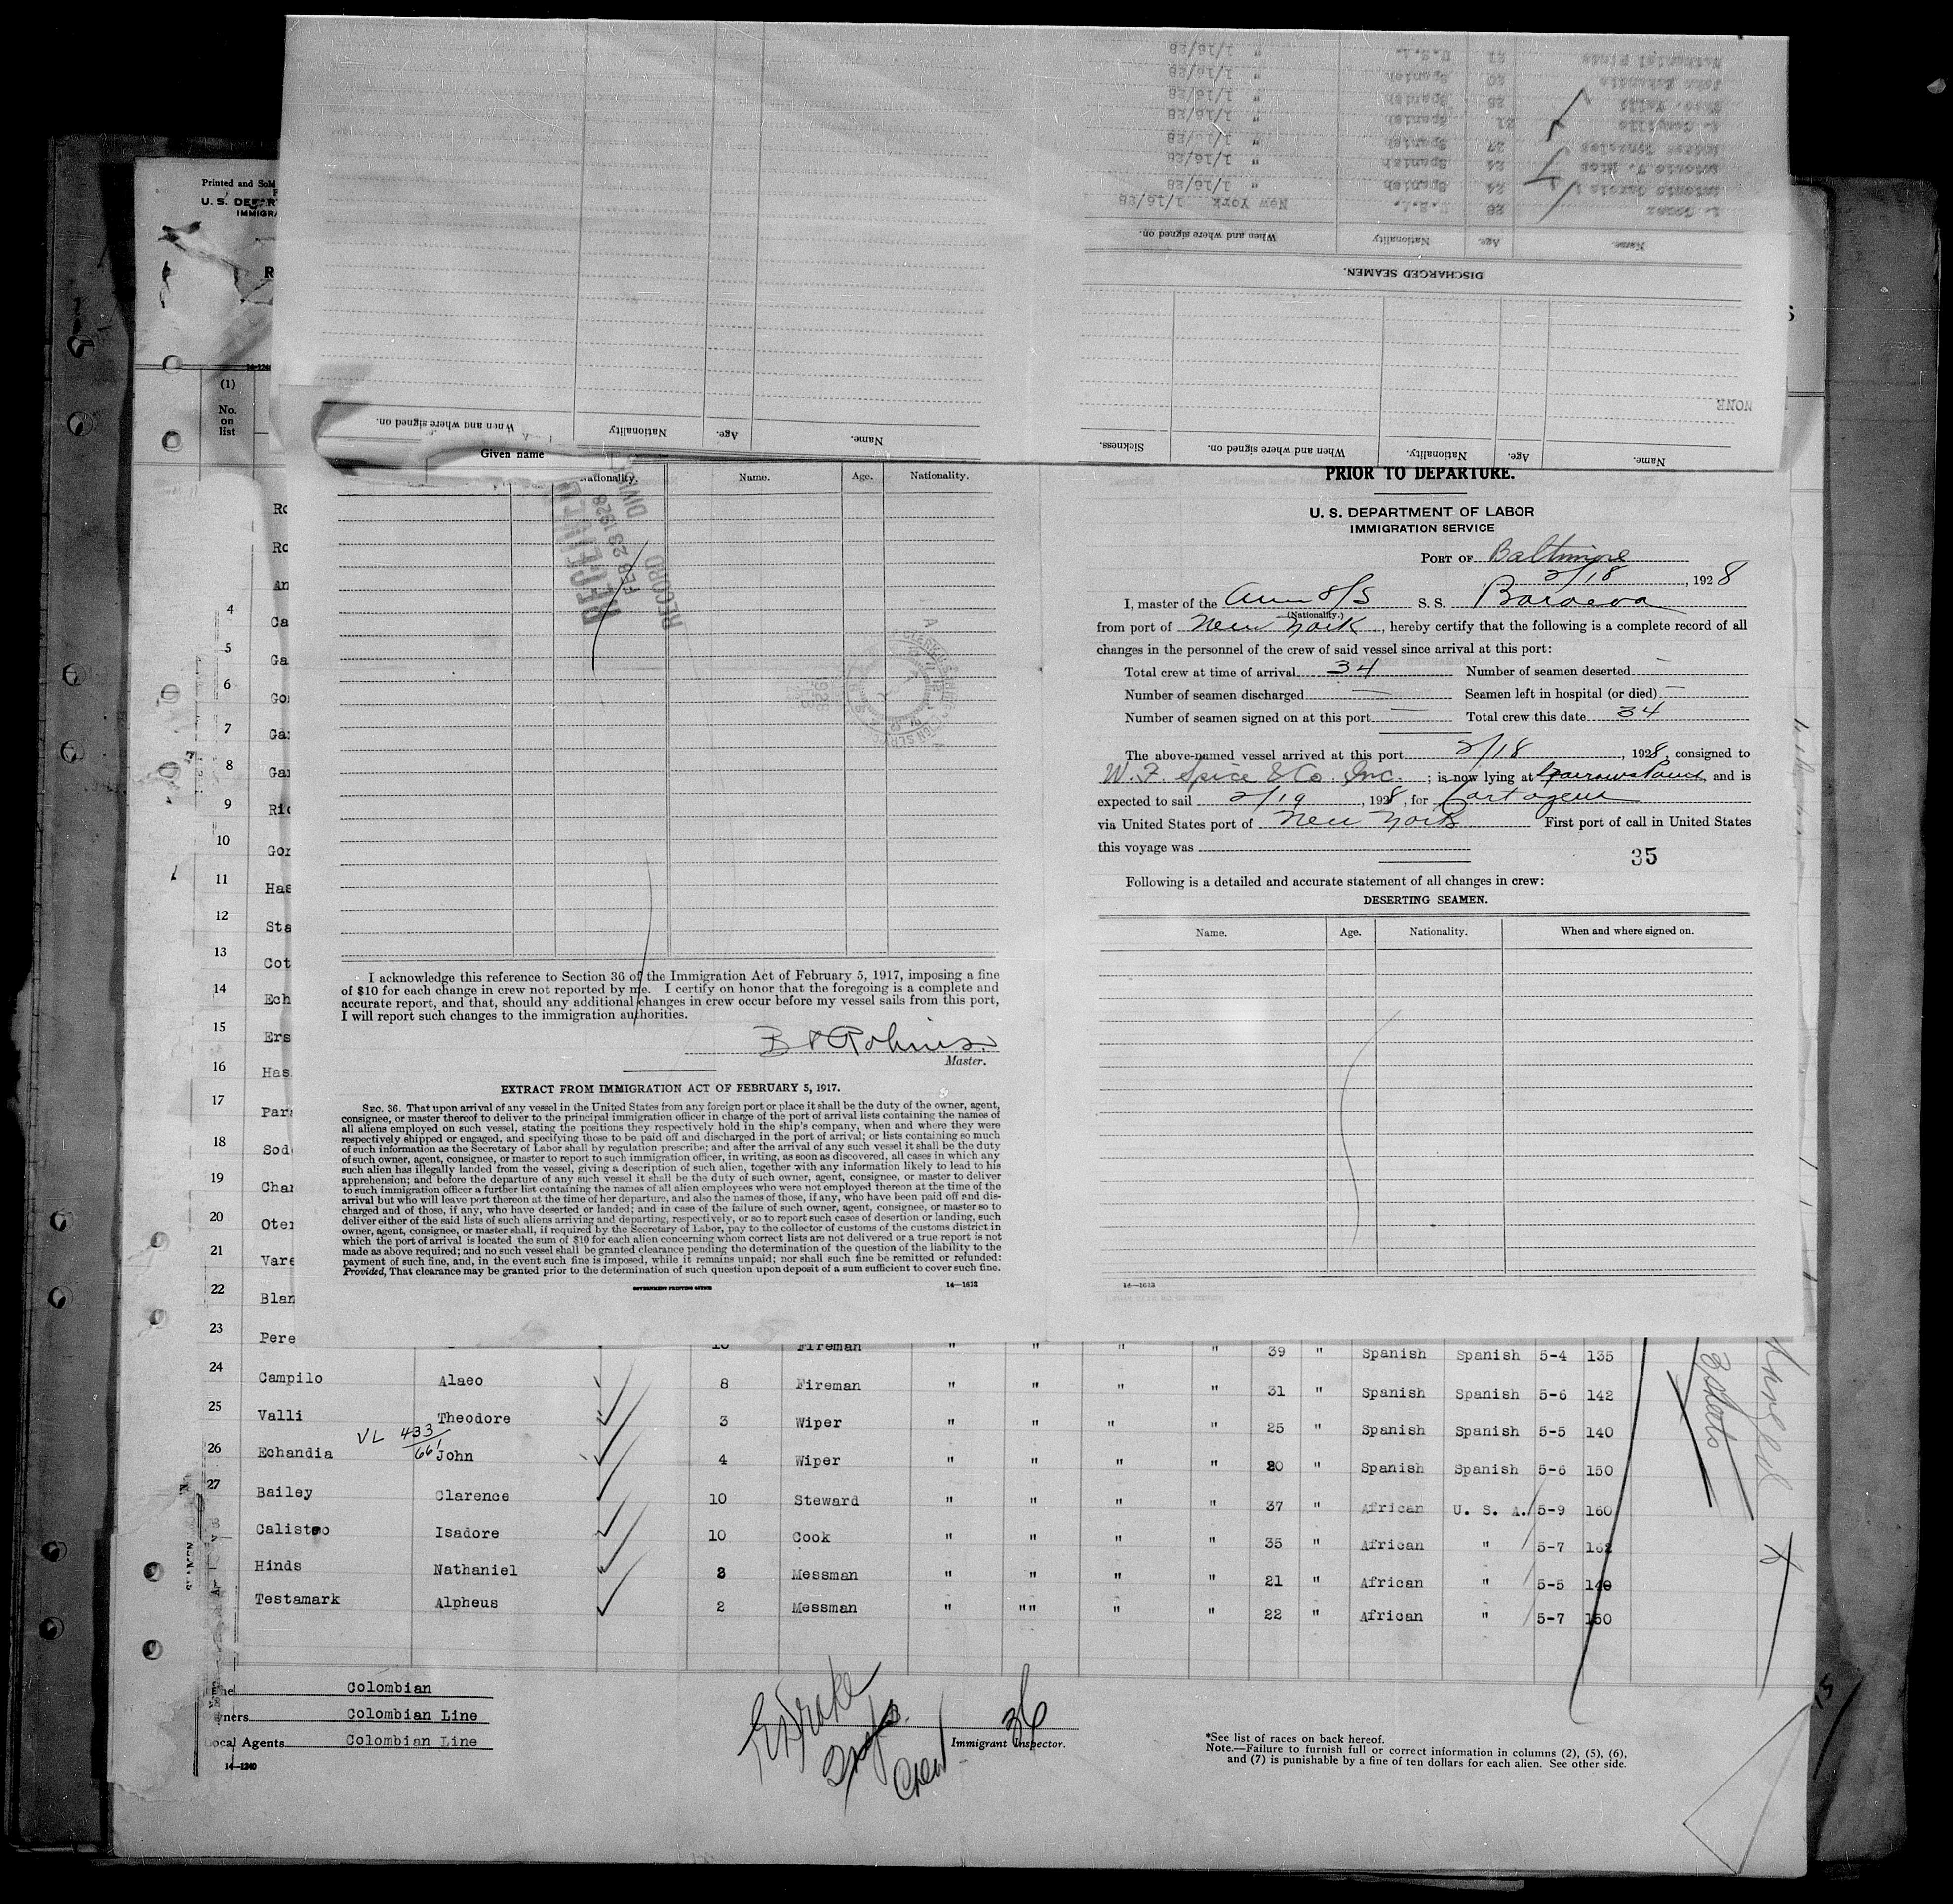 1/16/28 " U.S.A. 21 Nathaniel Hinds
1/16/28 " Spanish 20 John Echandia
1/16/28 " Spanish 25 Valli
1/16/28 " Spanish 31 Campillo
1/16/28 " Spanish 27 Gonzales
1/16/28 " Spanish 24 Antonio V. Rios
1/16/28 " Spanish 24 Antonio Garcia
New York 1/16/28 U.S.A. 28 L. Gomez
When and where signed on. Nationality Age. Name.
DISCHARGED SEAMEN.
NONE
Sickness. When and where signed on. Nationality. Age. Name.
When and where signed on. Nationality Age. Name.
Printed and Sold
IMMIGRA
R
(1)
No.
on
list
Given name
Ro
Ro
An
4 Ca
5 Ga
6 Go
7 Ga
8 Ga
9 Ric
10 Gor
11 Has
12 Sta
13 Cot
14 Ech
15 Ers
16 Has
17 Para
18 Sod
19 Char
20 Oter
21 Vare
22 Blan
23 Pere
Nationality. Name. Age. Nationality.
RECEIVED
FEB 23 1928
RECORD DIVISI
I acknowledge this reference to Section 36 of the Immigration Act of February 5, 1917, imposing a fine
of $10 for each change in crew not reported by me. I certify on honor that the foregoing is a complete and
accurate report, and that, should any additional changes in crew occur before my vessel sails from this port,
I will report such changes to the immigration authorities.
Master.
EXTRACT FROM IMMIGRATION ACT OF FEBRUARY 5, 1917.
SEC. 36. That upon arrival of any vessel in the United States from any foreign port or place it shall be the duty of the owner, agent,
consignee, or master thereof to deliver to the principal immigration officer in charge of the port of arrival lists containing the names of
all aliens employed on such vessel, stating the positions they respectively hold in the ship's company, when and where they were
respectively shipped or engaged, and specifying those to be paid off and discharged in the port of arrival; or lists containing so much
of such information as the Secretary of Labor shall by regulation prescribe; and after the arrival of any such vessel it shall be the duty
of such owner, agent, consignee, or master to report to such immigration officer, in writing, as soon as discovered, all cases in which any
such alien has illegally landed from the vessel, giving a description of such alien, together with any information likely to lead to his
apprehension; and before the departure of any such vessel it shall be the duty of such owner, agent, consignee, or master to deliver
to such immigration officer a further list containing the names of all alien employees who were not employed thereon at the time of the
arrival but who will leave port thereon at the time of her departure, and also the names of those, if any, who have been paid off and dis-
charged and of those, if any, who have deserted or landed; and in case of the failure of such owner, agent, consignee, or master so to
deliver either of the said lists of such aliens arriving and departing, respectively, or so to report such cases of desertion or landing, such
owner, agent, consignee, or master shall, if required by the Secretary of Labor, pay to the collector of customs of the customs district in
which the port of arrival is located the sum of $10 for each alien concerning whom correct lists are not delivered or a true report is not
made as above required; and no such vessel shall be granted clearance pending the determination of the question of the liability to the
payment of such fine, and, in the event such fine is imposed, while it remains unpaid; nor shall such fine be remitted or refunded:
Provided, That clearance may be granted prior to the determination of such question upon deposit of a sum sufficient to cover such fine.
GOVERNMENT PRINTING OFFICE 14—1613
PRIOR TO DEPARTURE.
U. S. DEPARTMENT OF LABOR
IMMIGRATION SERVICE
PORT OF Baltimore
2/18, 1928
I, master of the Am S/S S. S. Baracoa
(Nationality.)
from port of New York, hereby certify that the following is a complete record of all
changes in the personnel of the crew of said vessel since arrival at this port:
Total crew at time of arrival 34 Number of seamen deserted —
Number of seamen discharged — Seamen left in hospital (or died) —
Number of seamen signed on at this port — Total crew this date 34
The above-named vessel arrived at this port 2/18, 1928, consigned to
W. F. Spice & Co. Inc. ; is now lying at Sparrows Point and is
expected to sail 2/19, 1928, for Cartagena
via United States port of New York First port of call in United States
this voyage was
35
Following is a detailed and accurate statement of all changes in crew:
DESERTING SEAMEN.
Name. Age. Nationality. When and where signed on.
14—1613
Fireman " " " " 39 " Spanish Spanish 5-4 135
24 Campilo Alaeo 8 Fireman " " " " 31 " Spanish Spanish 5-6 142
25 Valli Theodore 3 Wiper " " " " 25 " Spanish Spanish 5-5 140
VL 433/661
26 Echandia John 4 Wiper " " " " 20 " Spanish Spanish 5-6 150
27 Bailey Clarence 10 Steward " " " " 37 " African U. S. A. 5-9 160
Calisteo Isadore 10 Cook " " " " 35 " African " 5-7 162
Hinds Nathaniel 2 Messman " " " " 21 " African " 5-5 140
Testamark Alpheus 2 Messman " "" " " 22 " African " 5-7 150
Colombian
wners Colombian Line
Local Agents Colombian Line
14—1240
36
Crew
Immigrant Inspector.
*See list of races on back hereof.
Note.—Failure to furnish full or correct information in columns (2), (5), (6),
and (7) is punishable by a fine of ten dollars for each alien. See other side.